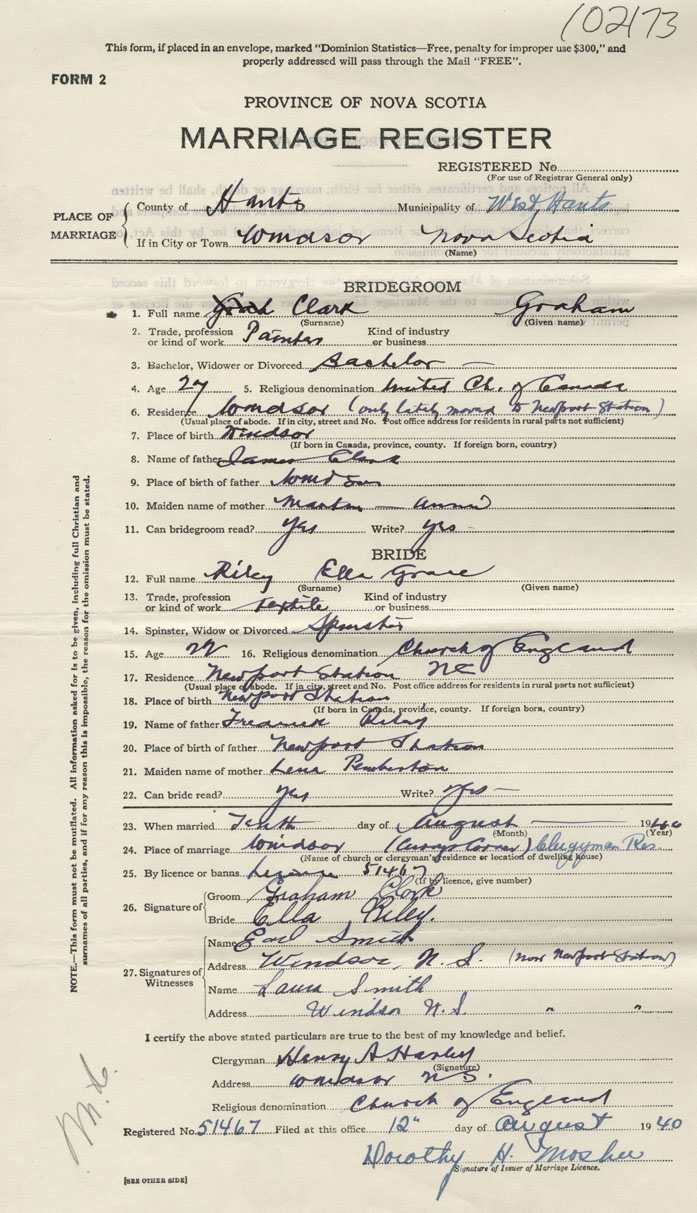 102173
This form, if placed in an envelope, marked "Dominion Statistics—Free, penalty for improper use $300," and
properly addressed will pass through the Mail "FREE".
FORM 2
PROVINCE OF NOVA SCOTIA
MARRIAGE REGISTER
REGISTERED No.
(For use of Registrar General only)
PLACE OF MARRIAGE
County of Hants Municipality of West Hants
If in City or Town Windsor Nova Scotia
(Name)
BRIDEGROOM
1. Full name Clark Graham
(Surname) (Given name)
2. Trade, profession or kind of work Painter Kind of industry or business
3. Bachelor, Widower or Divorced Bachelor —
4. Age 27 5. Religious denomination United Ch. of Canada
6. Residence Windsor (only lately moved to Newport Station)
(Usual place of abode. If in city, street and No. Post office address for residents in rural parts not sufficient)
7. Place of birth Windsor
(If born in Canada, province, county. If foreign born, country)
8. Name of father James Clark
9. Place of birth of father Windsor
10. Maiden name of mother — Annie
11. Can bridegroom read? Yes Write? Yes -
BRIDE
12. Full name Riley Ella Grace
(Surname) (Given name)
13. Trade, profession or kind of work Textile Kind of industry or business
14. Spinster, Widow or Divorced Spinster
15. Age 22 16. Religious denomination Church of England
17. Residence Newport Station
(Usual place of abode. If in city, street and No. Post office address for residents in rural parts not sufficient)
18. Place of birth Newport Station
(If born in Canada, province, county. If foreign born, country)
19. Name of father Frederick Riley
20. Place of birth of father Newport Station
21. Maiden name of mother Lena Pemberton
22. Can bride read? yes Write? yes -
23. When married Tenth day of August 1940
(Month) (Year)
24. Place of marriage Windsor (Currys Corner) Clergyman Res.
(Name of church or clergyman's residence or location of dwelling house)
25. By licence or banns License 51467
(If by licence, give number)
26. Signature of
Groom Graham Clark
Bride Ella Riley.
27. Signatures of Witnesses
Name Earl Smith
Address Windsor, N. S. (now Newport Station)
Name Laura Smith
Address Windsor N.S. " "
I certify the above stated particulars are true to the best of my knowledge and belief.
Clergyman Henry A Harley
(Signature)
Address Windsor N.S.
Religious denomination Church of England
Registered No. 51467 Filed at this office 12" day of August 1940
Dorothy H. Mosher
Signature of Issuer of Marriage Licence.
[SEE OTHER SIDE]
NOTE.—This form must not be mutilated. All information asked for is to be given, including full Christian and
surnames of all parties, and if for any reason this is impossible, the reason for the omission must be stated.